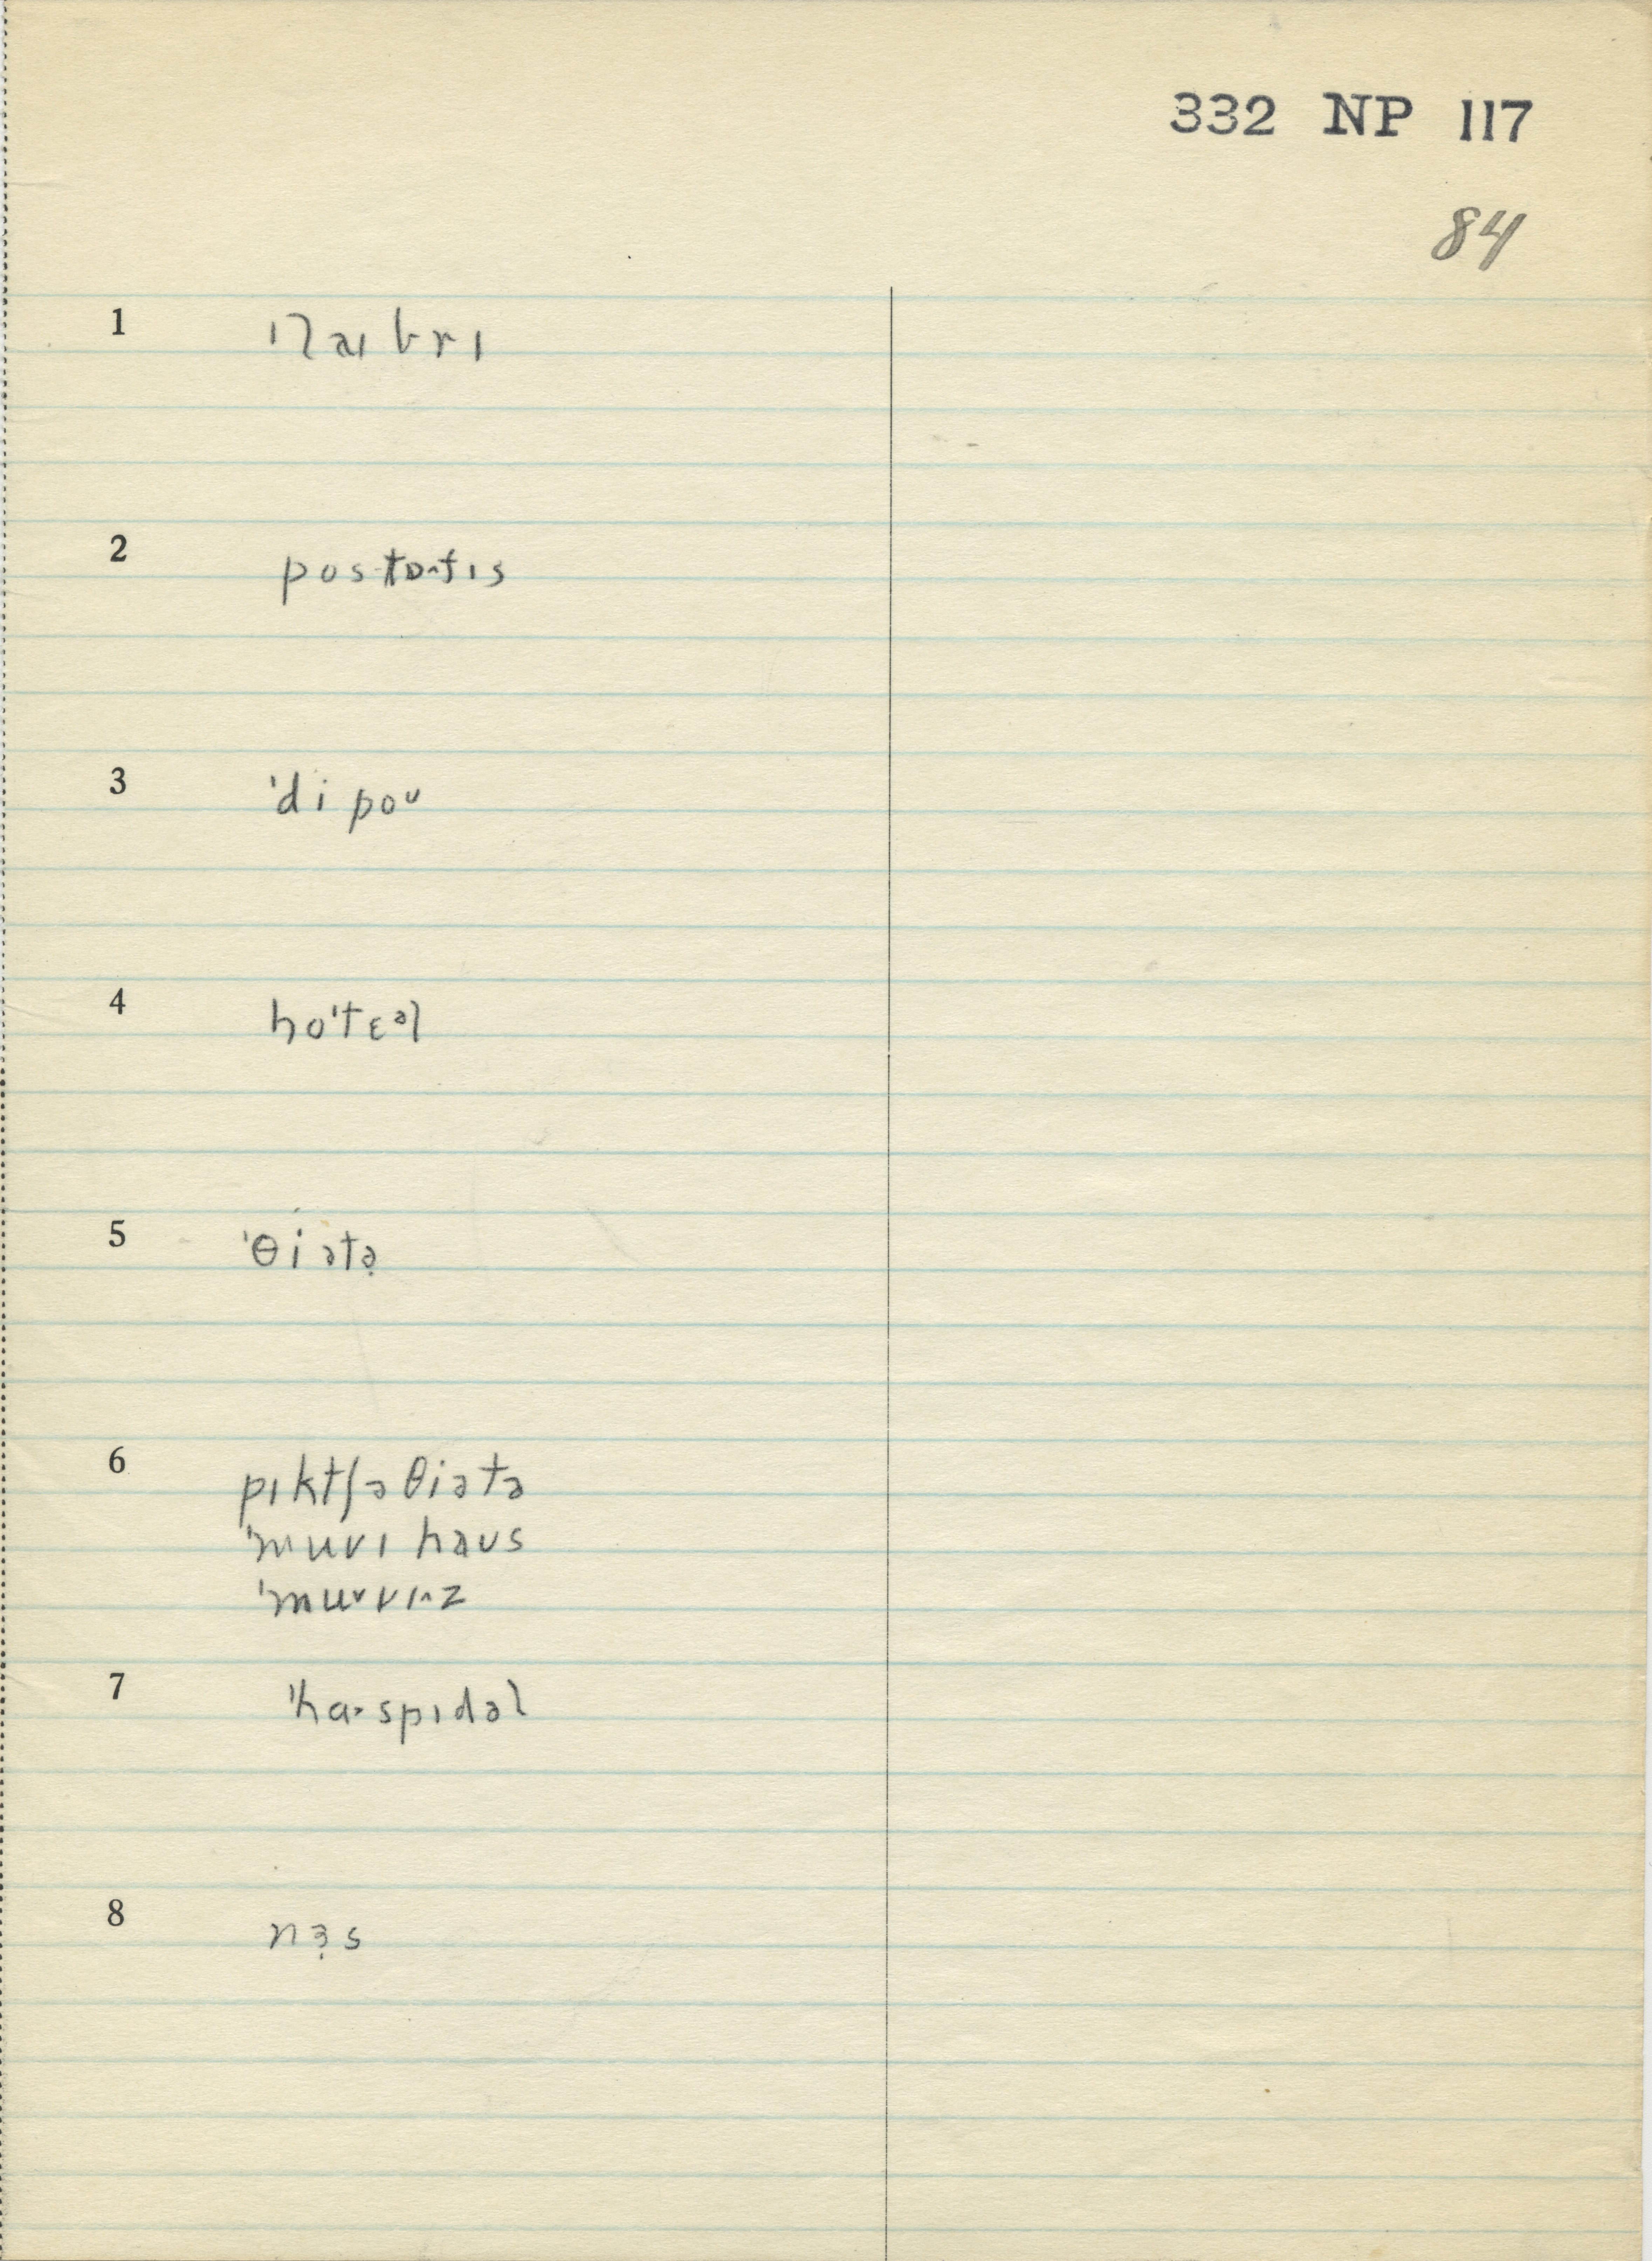 332 NP 117
84
1 ˈlaɪbrɪ
2 postɒ˔fɪs
3 ˈdi poᴜ
4 hoˈtɛᵊl
5 ˈθiətə̣
6 pɪktʃə θiətə
ˈmuvɪ haʊs
ˈmuᵛvɪ˔z
7 ˈhɑ˞spɪdəl
8 nɜ̣s